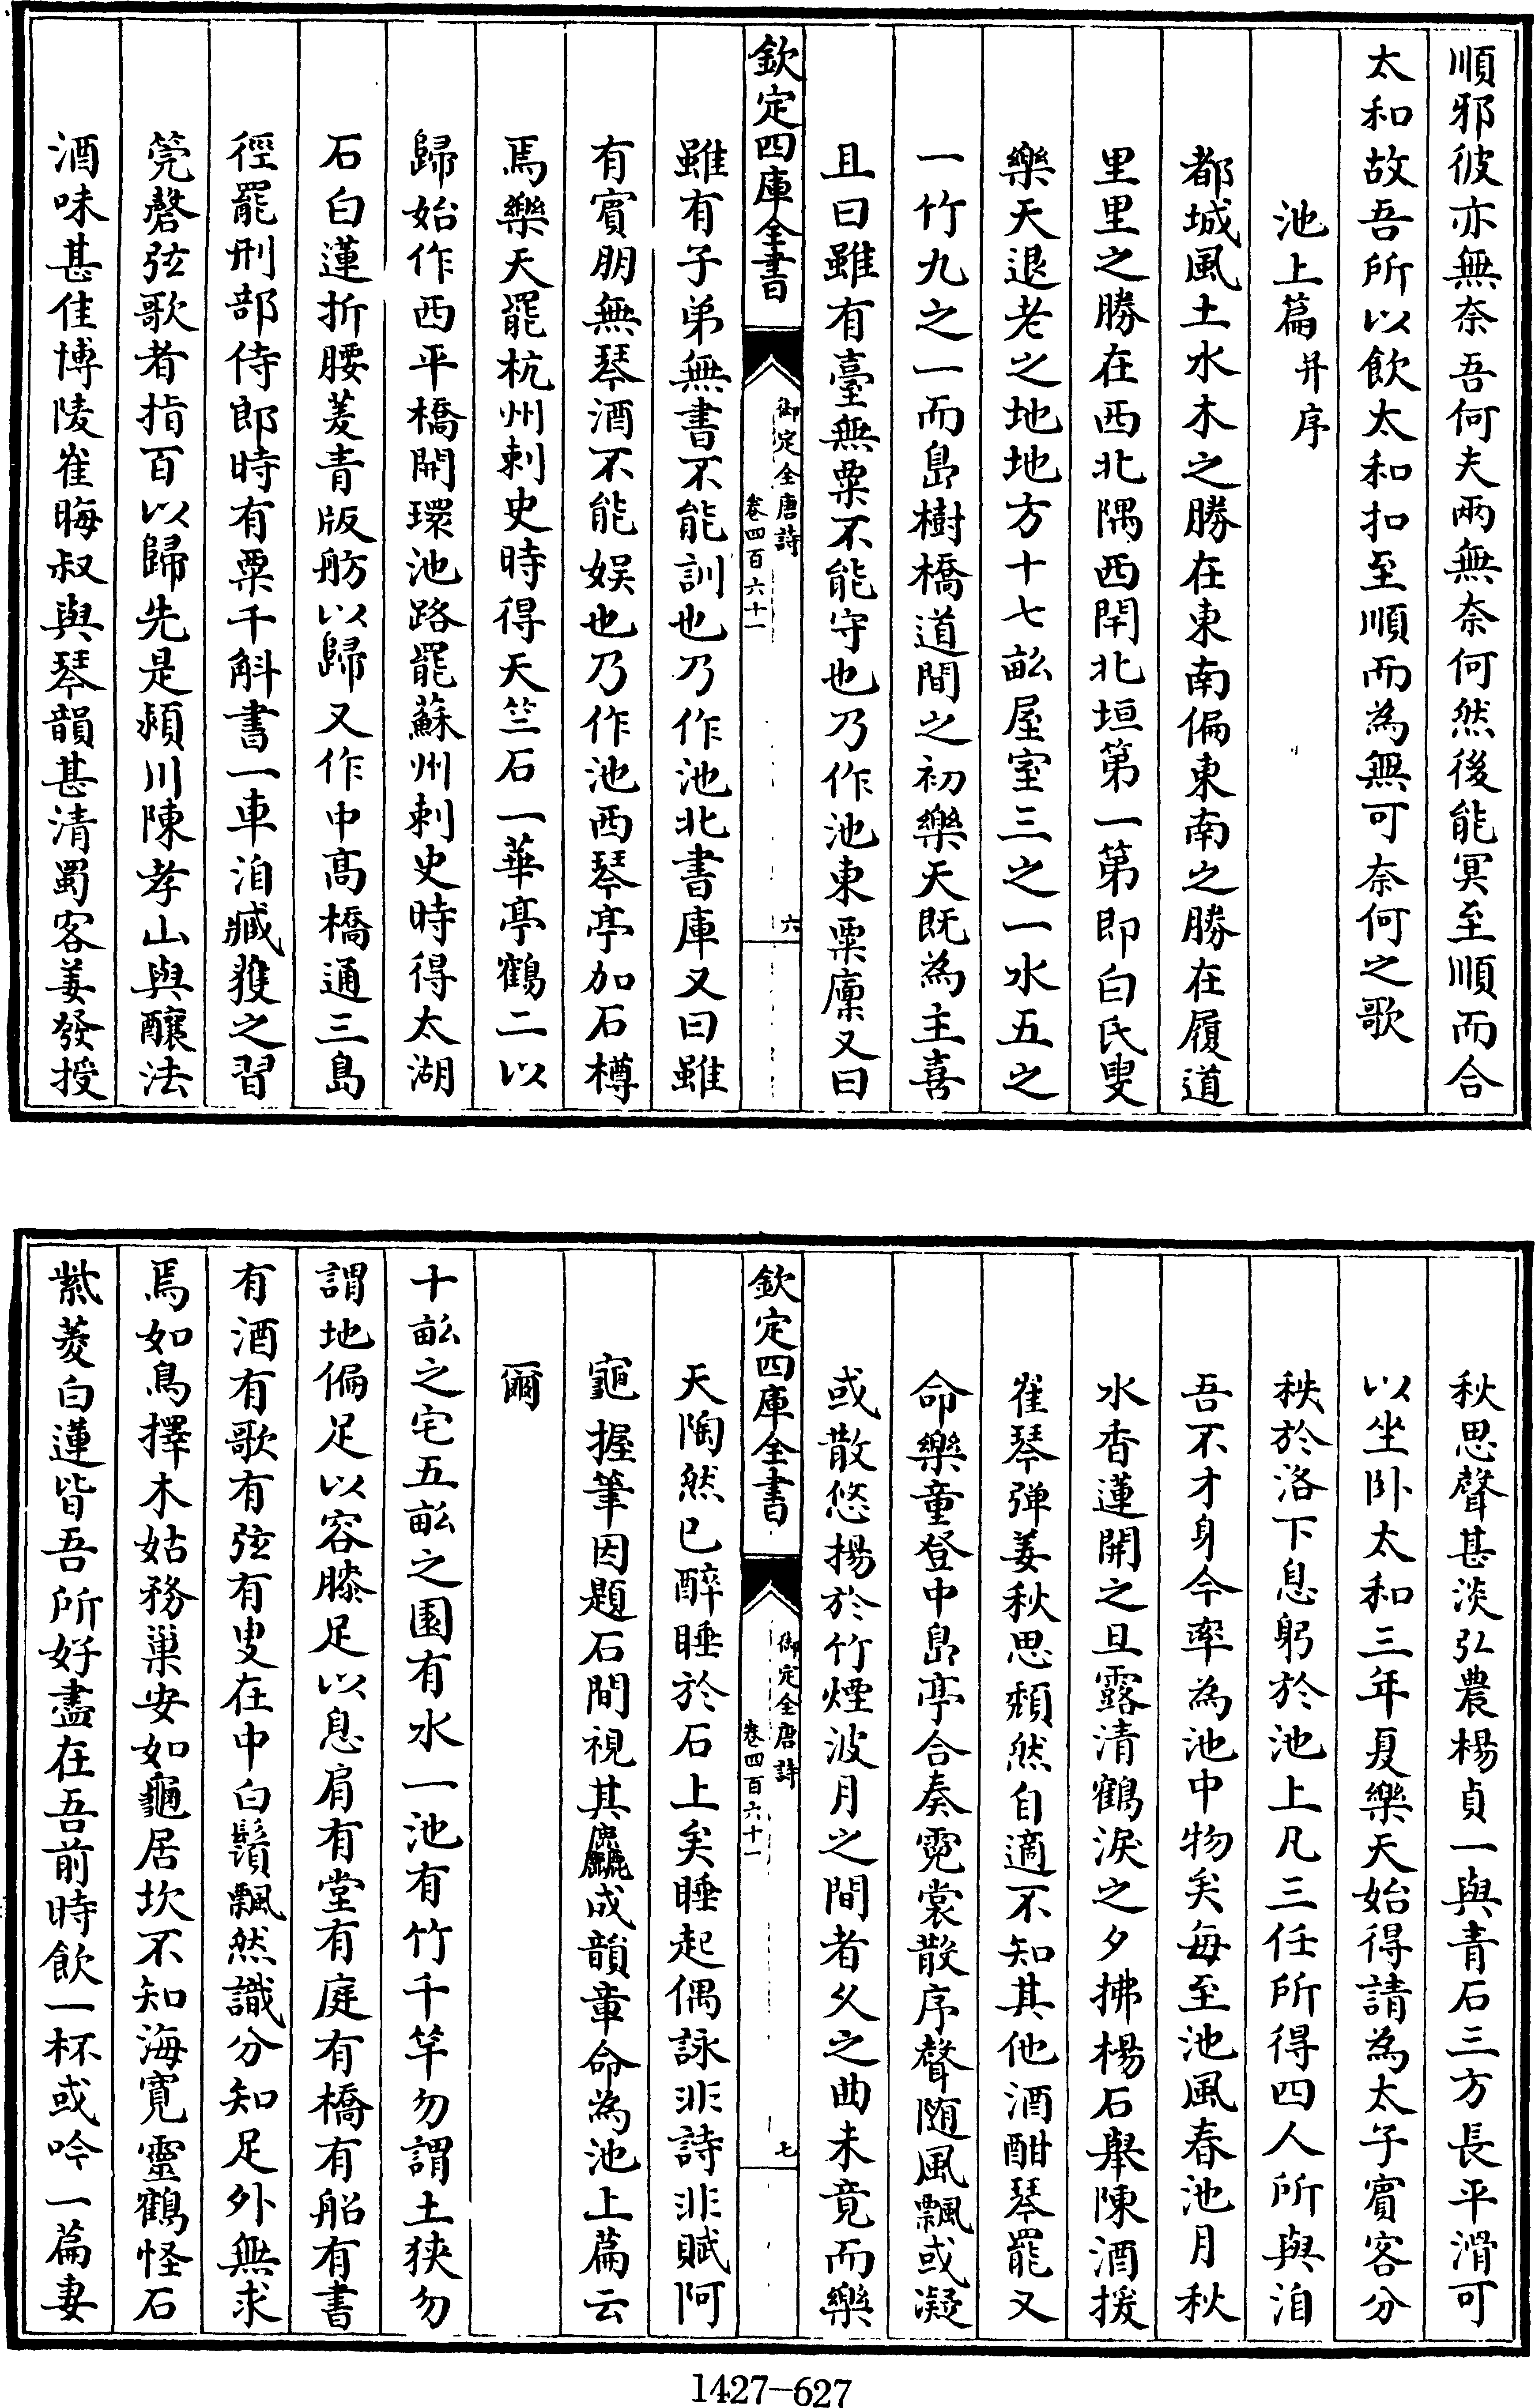 順邪彼亦無奈吾何夫兩無奈何然後能冥至順而合
太和故吾所以飲太和扣至順而為無可奈何之歌
池上篇并序
都城風土水木之勝在東南偏東南之勝在履道
里里之勝在西北隅西閈北垣第一第即白氏叟
樂天退老之地地方十七畝屋室三之一水五之
一竹九之一而島樹橋道間之初樂天既為主喜
且曰雖有臺無粟不能守也乃作池東粟廩又曰
欽定四庫全書
御定全唐詩
卷四百六十一
六
雖有子弟無書不能訓也乃作池北書庫又曰雖
有賓朋無琴酒不能娛也乃作池西琴亭加石樽
焉樂天罷杭州刺史時得天竺石一華亭鶴二以
歸始作西平橋開環池路罷蘇州刺史時得太湖
石白蓮折腰菱青版舫以歸又作中高橋通三島
徑罷刑部侍郎時有粟千斛書一車洎臧獲之習
筦磬弦歌者指百以歸先是潁川陳孝山與釀法
酒味甚佳博陵崔晦叔與琴韻甚清蜀客姜發授
秋思聲甚淡弘農楊貞一與青石三方長平滑可
以坐卧太和三年夏樂天始得請為太子賓客分
秩於洛下息躬於池上凡三任所得四人所與洎
吾不才身今率為池中物矣每至池風春池月秋
水香蓮開之旦露清鶴淚之夕拂楊石舉陳酒援
崔琴彈姜秋思頹然自適不知其他酒酣琴罷又
命樂童登中島亭合奏霓裳散序聲隨風飄或凝
或散悠揚於竹煙波月之間者久之曲未竟而樂
欽定四庫全書
御定全唐詩
卷四百六十一
七
天陶然已醉睡於石上矣睡起偶詠非詩非賦阿
龜握筆因題石間視其麤成韻章命為池上篇云
爾
十畝之宅五畝之園有水一池有竹千竿勿謂土狹勿
謂地偏足以容膝足以息肩有堂有庭有橋有船有書
有酒有歌有弦有叟在中白鬚飄然識分知足外無求
焉如鳥擇木姑務巢安如龜居坎不知海寛靈鶴怪石
紫菱白蓮皆吾所好盡在吾前時飲一杯或吟一篇妻
1427-627